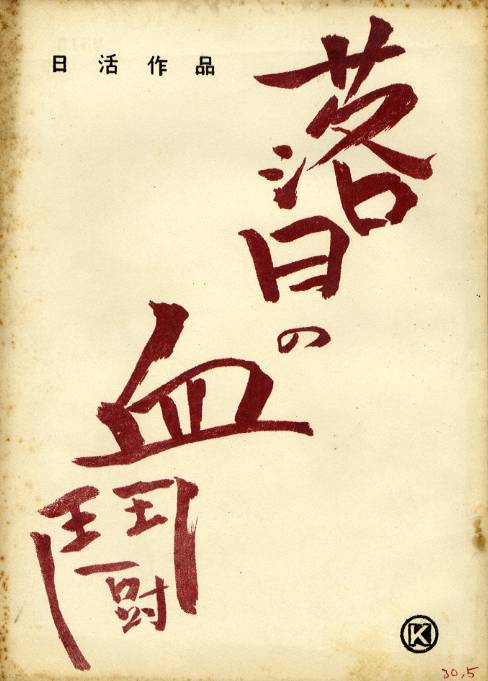 日活作品
落日の
血鬪
K
30,5